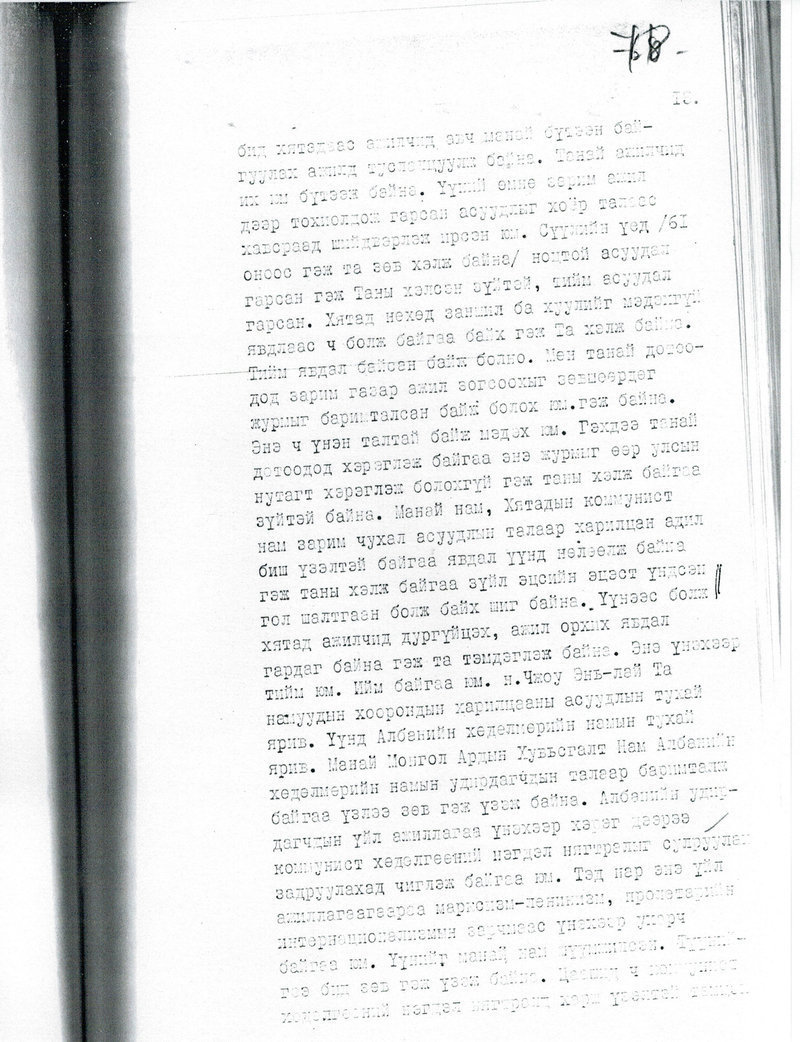 18.
бид хятадаас ажилчид авч манай бүтээн бай-
гуулах ажилд тусланцуулж байна. Танай ажилчид
их юм бүтээж байна. Үүний өмнө зарим ажил
дээр тохиолдож гарсан асуудлыг хоёр талаас
хавсраад шийдвэрлэж ирсэн юм. Сүүлийн үед /61
оноос гэж та зөв хэлж байна/ ноцтой асуудал
гарсан гэж Таны хэлсэн зүйтэй, тийм асуудал
гарсан. Хятад нөхөд заншил ба хуулийг мэдэхгүй
явдлаас ч болж байгаа байх гэж Та хэлж байна.
Тийм явдал байсан байж болно. Мөн танай дотоо-
дод зарим газар ажил зогсоохыг зөвшөөрдөг
журмыг баримталсан байж болох юм.гэж байна.
Энэ ч үнэн талтай байж мэдэх юм. Гэхдээ танай
дотоодод хэрэглэж байгаа энэ журмыг өөр улсын
нутагт хэрэглэж болохгүй гэж таны хэлж байгаа
зүйтэй байна. Манай нам, Хятадын коммунист
нам зарим чухал асуудлын талаар харилцан адил
биш үзэлтэй байгаа явдал үүнд нөлөөлж байна
гэж таны хэлж байгаа зүйл эцсийн эцэст үндсэн
гол шалтгаан болж байх шиг байна. Үүнээс болж
хятад ажилчид дургүйцэх, ажил орхих явдал
гардаг байна гэж та тэмдэглэж байна. Энэ үнэхээр
тийм юм. Ийм байгаа юм. н.Чжоу Энь-лай Та
намуудын хоорондын харилцааны асуудлын тухай
ярив. Үүнд Албанийн хөдөлмөрийн намын тухай
ярив. Манай Монгол Ардын Хувьсгалт Нам Албанийн
хөдөлмөрийн намын удирдагчдын талаар баримталж
байгаа үзлээ зөв гэж үзэж байна. Албанийн удир-
дагчдын үйл ажиллагаа үнэхээр хэрэг дээрээ
коммунист хөдөлгөөний нэгдэл нягтралыг сулруулан
задруулахад чиглэж байгаа юм. Тэд нар энэ үйл
ажиллагаагаараа марксизм-ленинизм, пролетарийн
интернационализмын зарчмаас үнэхээр ухарч
байгаа юм. Үүнийг манай нам шүүмжилсэн.
гээ биш зөв гэж үзэж байна. Цаашид ч коммунист
хөдөлгөөний нэгдэл нягтралд